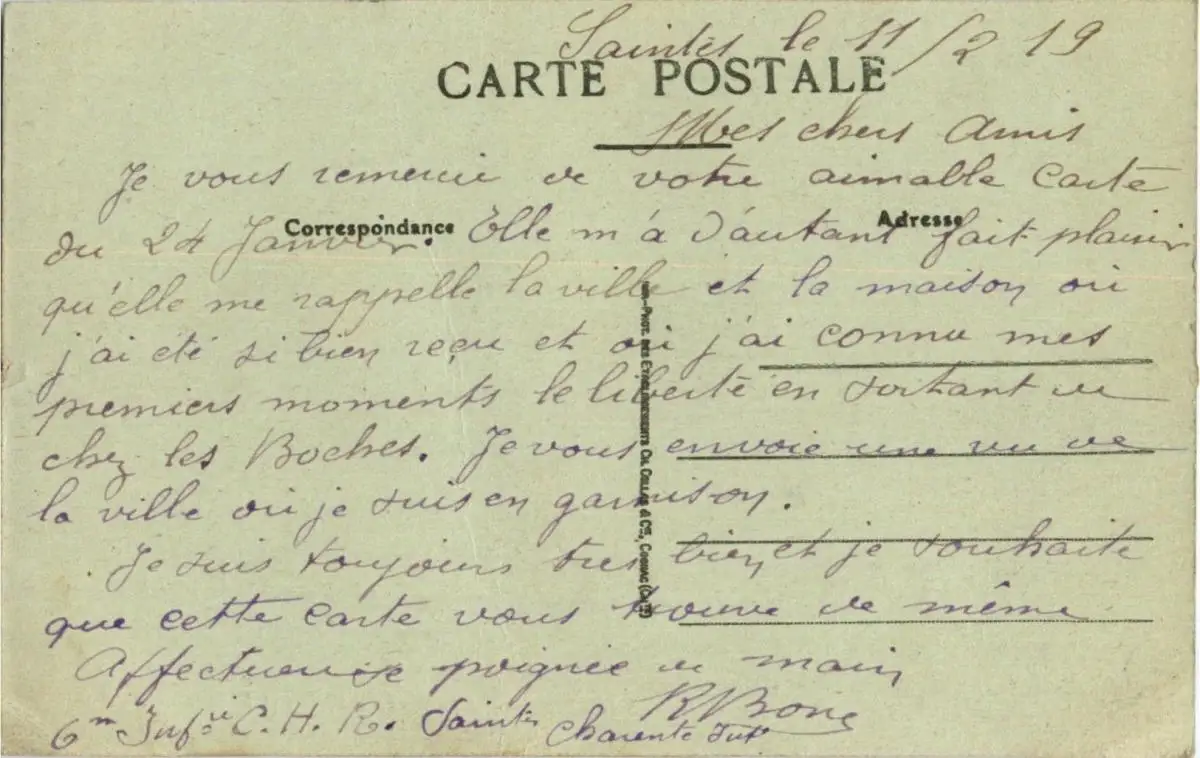 Saintes le 11/2 19
CARTE POSTALE
Mes chers Amis
Je vous remercie de votre aimable carte
Correspondance
Adresse
du 24 Janvier. Elle m'a d'autant fait plaisir
qu'elle me rappelle la ville et la maison où
j'ai été si bien reçu et où j'ai connu mes
premiers moments de liberté en sortant de
chez les Boches. Je vous envoie une vue de
la ville où je suis en garnison.
Je suis toujours très bien et je souhaite
que cette carte vous trouve de même
Affectueuse poignée de main
R Bone
6me Infrie C. H. R. Saintes Charente Infre
PHOT. DES ETABLISSEMENTS CH. COLLAS & Cie, COGNAC